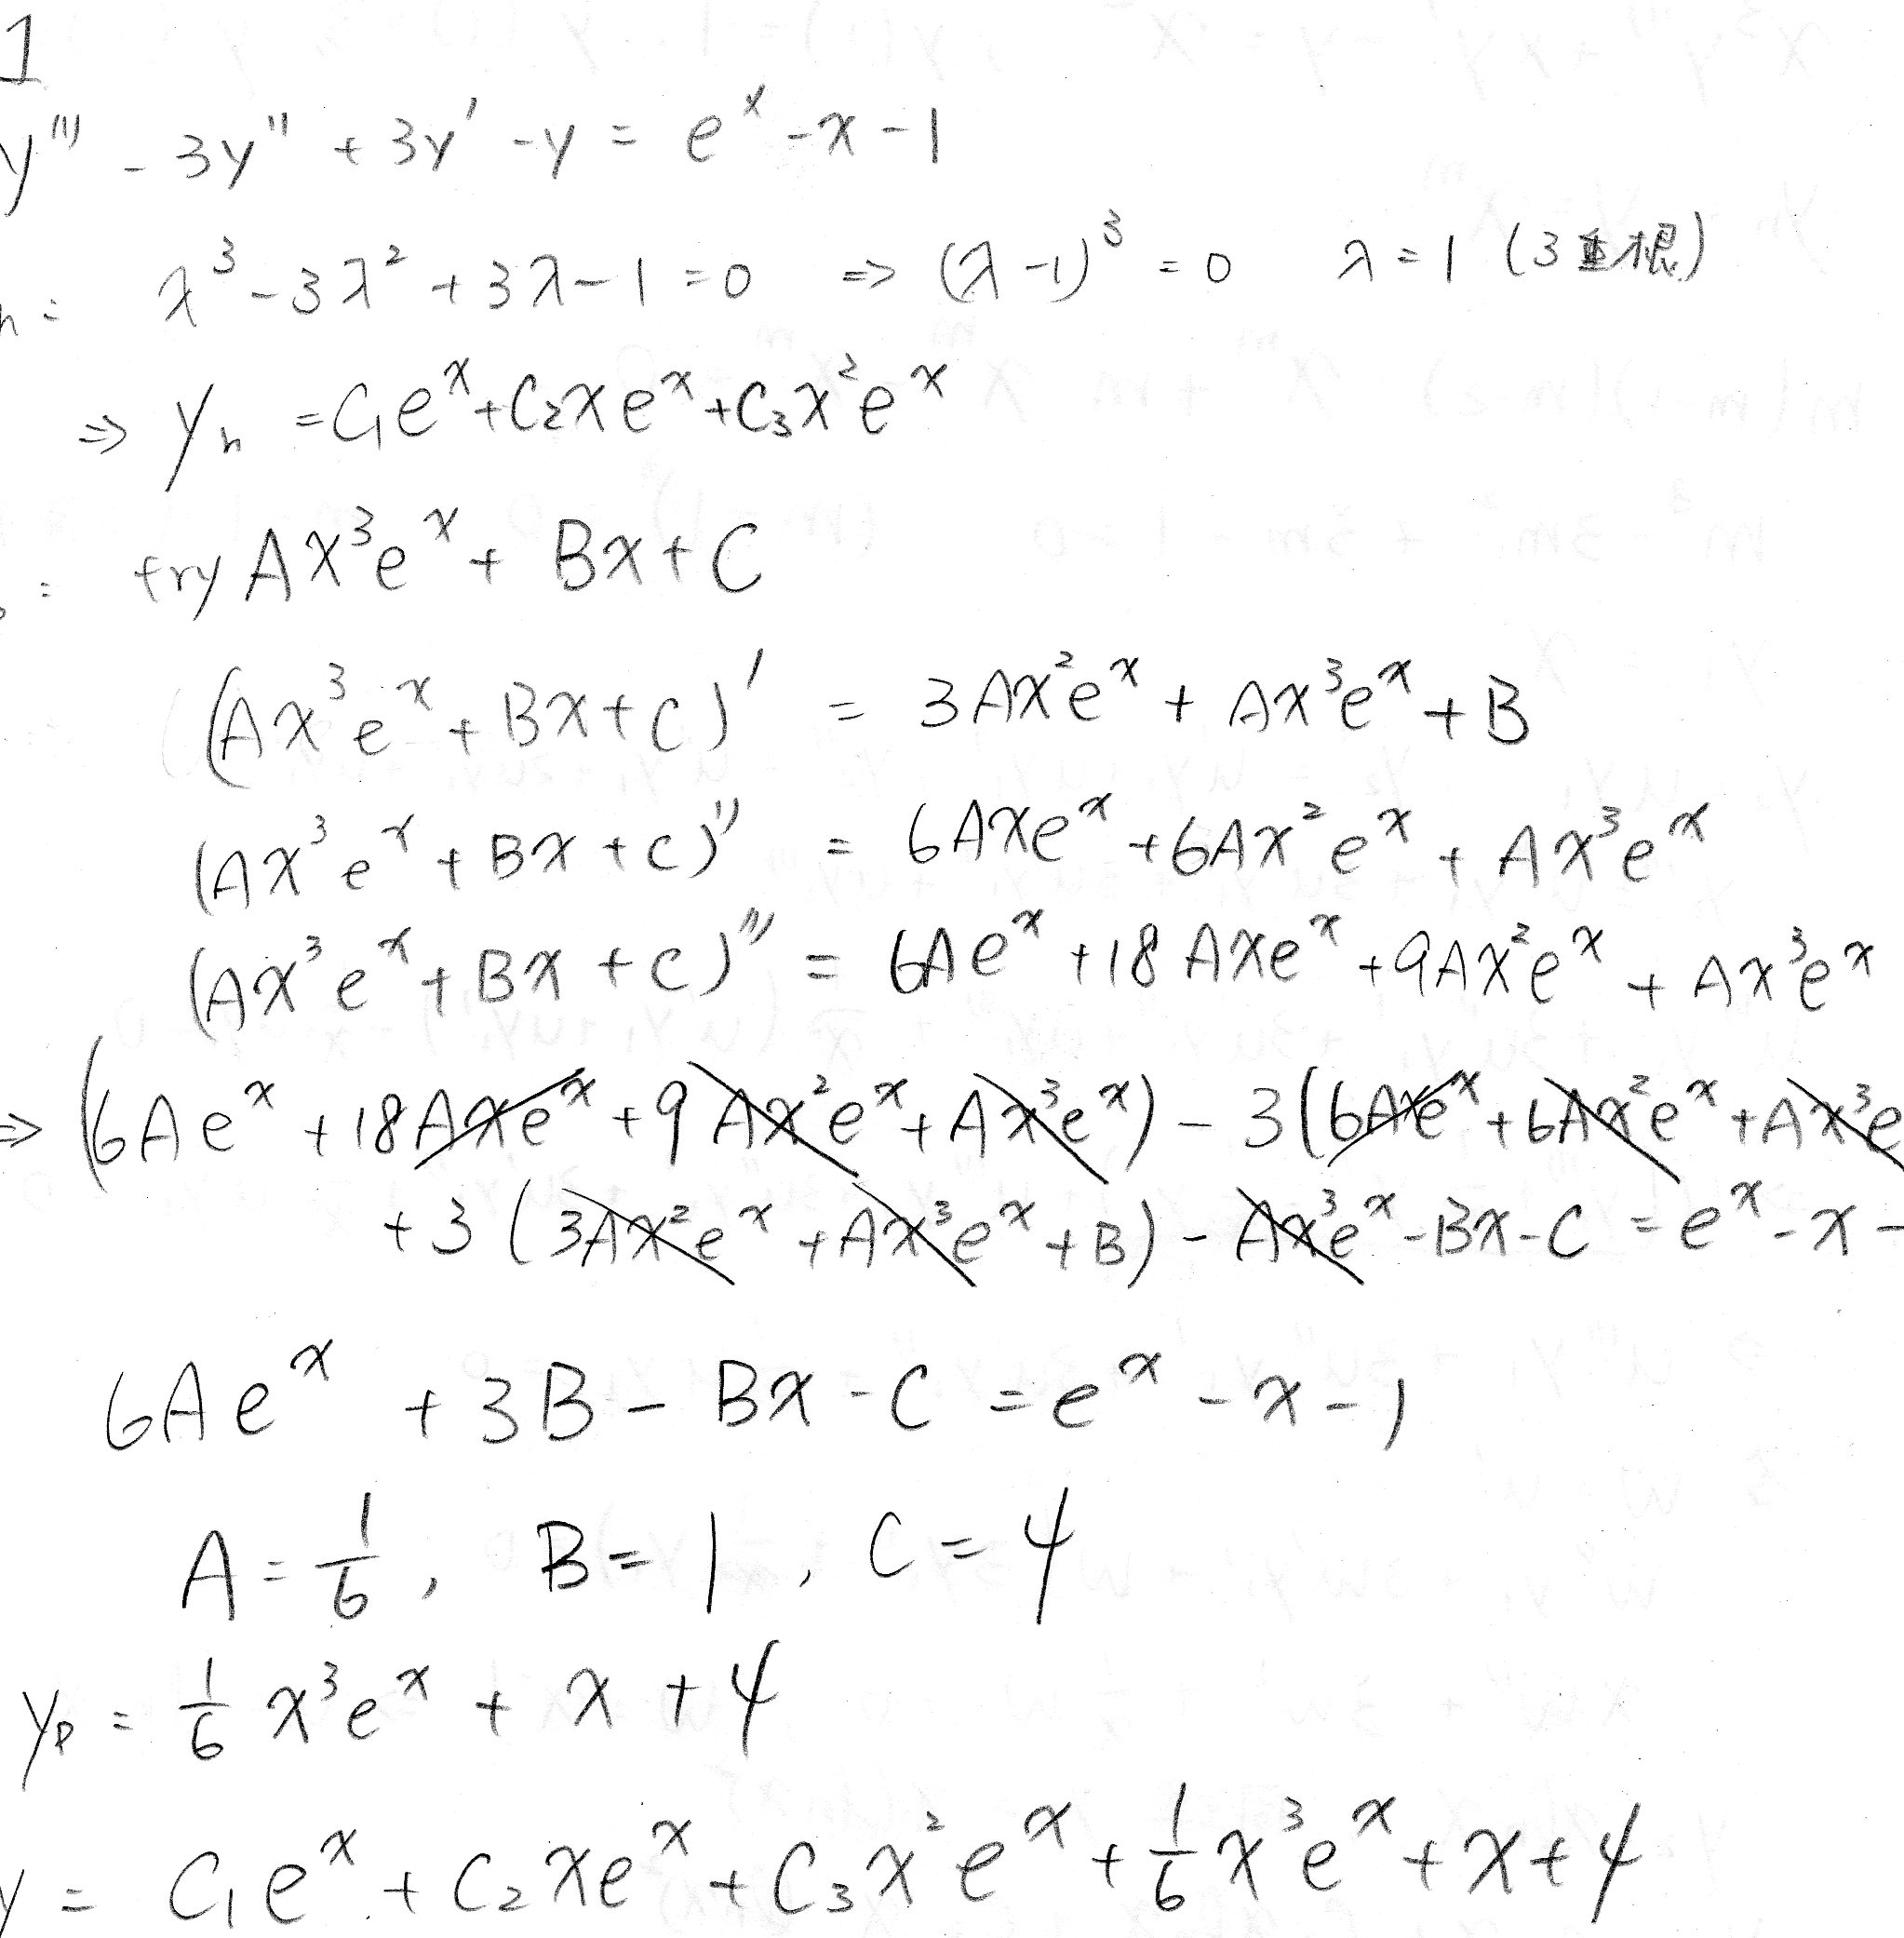 1
y''' - 3y'' + 3y' - y = e^x - x - 1
h: λ^3 - 3λ^2 + 3λ - 1 = 0 ⇒ (λ-1)^3 = 0 λ = 1 (3重根)
⇒ y_h = C_1e^x + C_2xe^x + C_3x^2e^x
: try Ax^3e^x + Bx + C
(Ax^3e^x + Bx + C)' = 3Ax^2e^x + Ax^3e^x + B
(Ax^3e^x + Bx + C)'' = 6Axe^x + 6Ax^2e^x + Ax^3e^x
(Ax^3e^x + Bx + C)''' = 6Ae^x + 18Axe^x + 9Ax^2e^x + Ax^3e^x
⇒ (6Ae^x + 18Axe^x + 9Ax^2e^x + Ax^3e^x) - 3(6Axe^x + 6Ax^2e^x + Ax^3e
+ 3(3Ax^2e^x + Ax^3e^x + B) - Ax^3e^x - Bx - C = e^x - x -
6Ae^x + 3B - Bx - C = e^x - x - 1
A = 1/6, B = 1, C = 4
y_p = 1/6 x^3e^x + x + 4
y = C_1e^x + C_2xe^x + C_3x^2e^x + 1/6 x^3e^x + x + 4